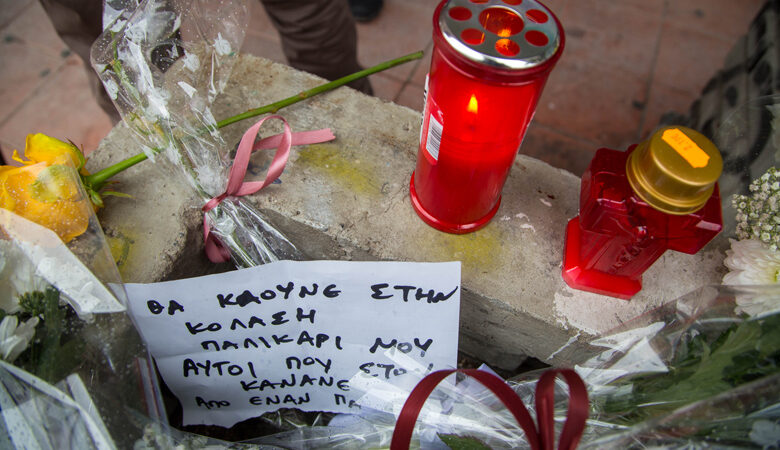 ΘΑ ΚΑΟΥΝΕ ΣΤΗΝ
ΚΟΛΑΣΗ
ΠΑΛΙΚΑΡΙ ΜΟΥ
ΑΥΤΟΙ ΠΟΥ ΣΤΟ
ΚΑΝΑΝΕ
ΑΠΟ ΕΝΑΝ ΠΑ